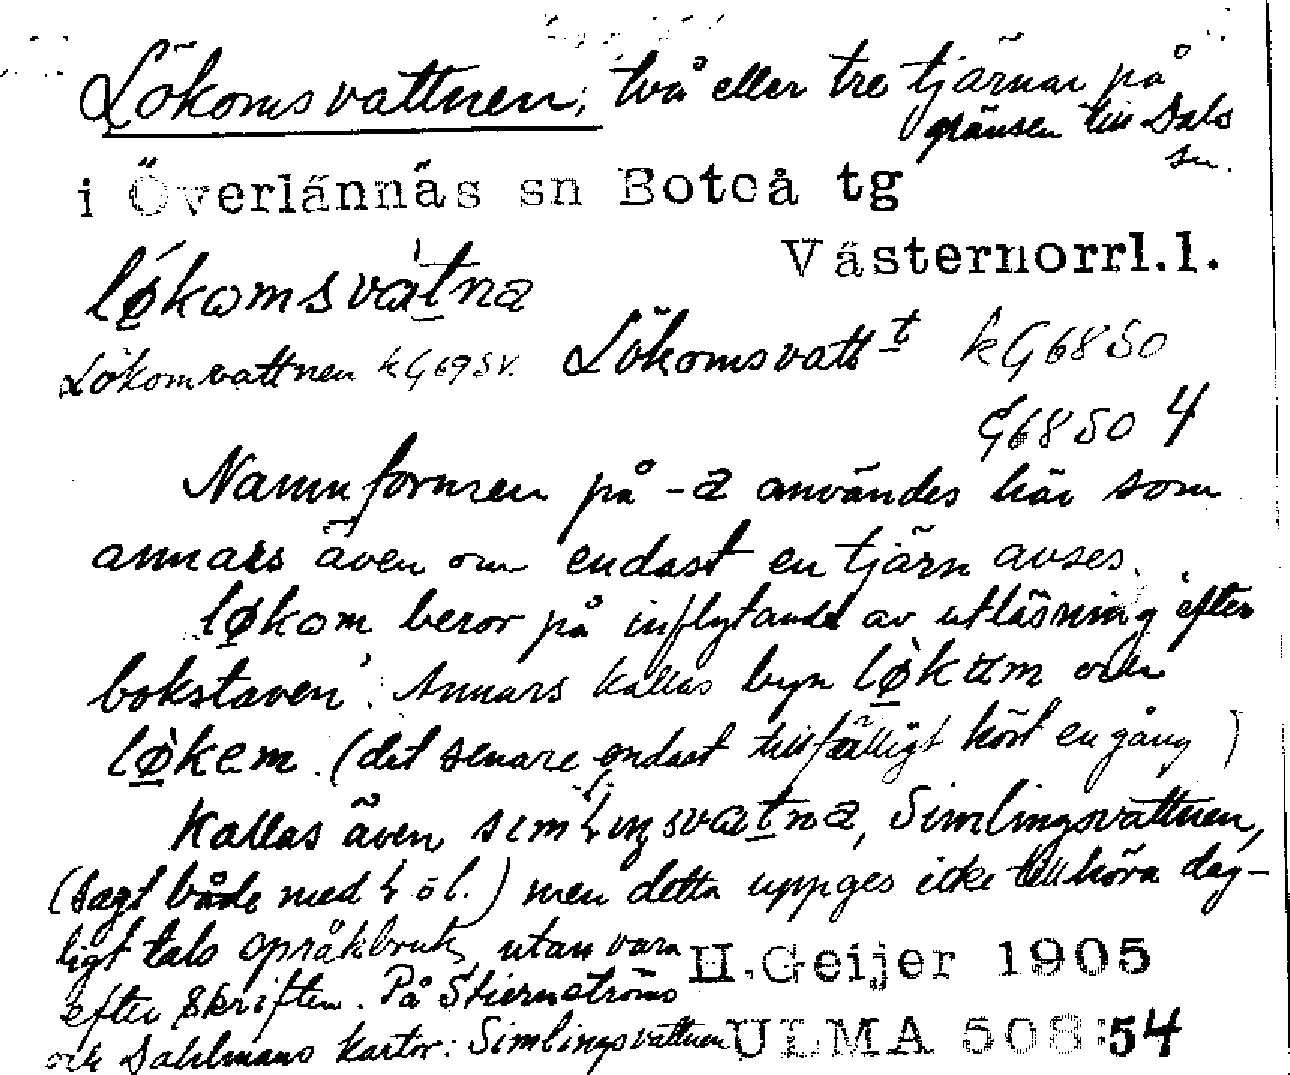 Lökomsvattnen; två eller tre tjärnar på
gränsen till Dals
sn.
i Överlännäs sn Boteå tg
Västernorrl.l.
løkomsvatna
Lökomvattnen kG69SV. Lökomsvatt t kG68SO
G68SO 4
Namnformen på -a användes här som
annars även om endast en tjärn avses.
løkom beror på inflytande av utläsning 'efter
bokstaven'. Annars kallas byn løkum och
løkem. (det senare endast tillfälligt hört en gång)
Kallas även simlıŋsvatna, Simlingsvattnen,
(sagt både med ł o l.) men detta uppges icke tillhöra dag-
ligt tals språkbruk, utan vara
efter skriften. På Stiernströms
och Dahlmans kartor: Simlingsvattnen
H.Geijer 1905
ULMA 508:54